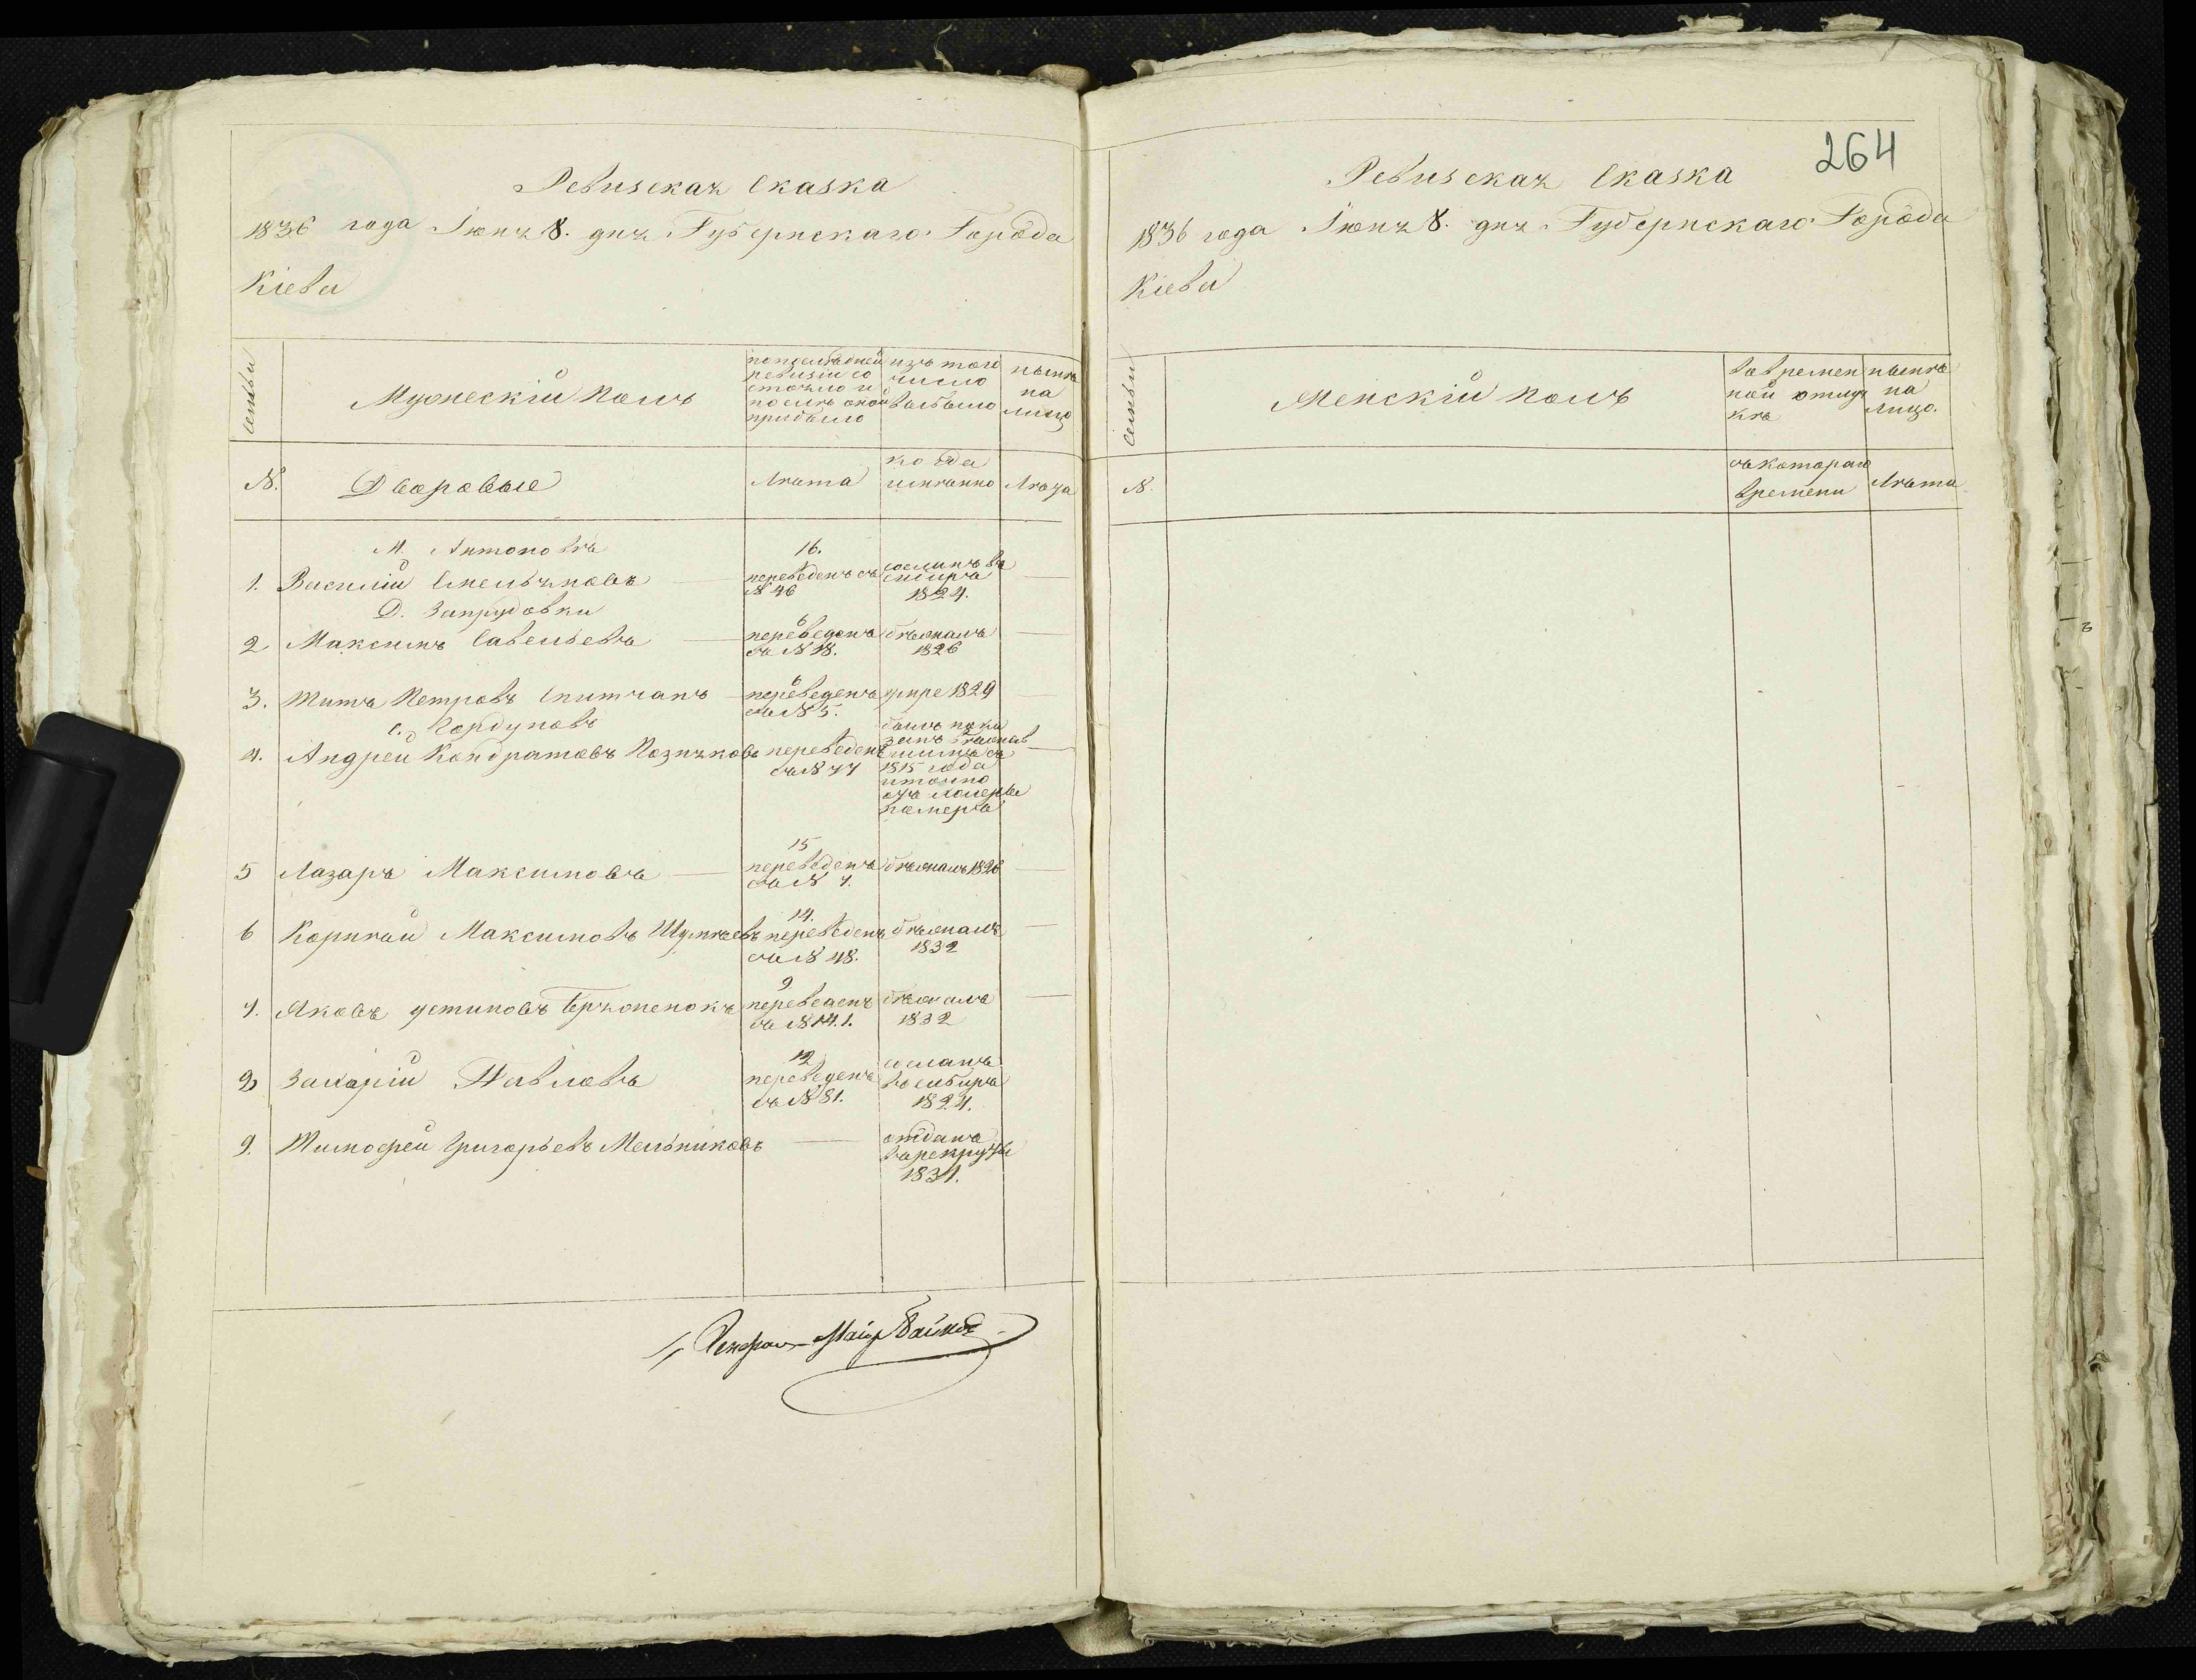 Ревизская Сказка
1836 года Июня 8. дня Губернскаго Города
Кіева
семьи
Мужескій полъ
попослѣдней
ревизіи со
стояло и
послѣ оной
прибыло
изъ того
число
выбыло
нынѣ
на
лицо
№.
Дворовые
Лѣта
когда
имянно
Лѣта
М. Антоновка
16.
1. Василій Емельяновъ
переведенъ съ
№ 46
сосланъ въ
сибирь
1824.
Д. Запрудовки
2 Максимъ Савельевъ
6
переведенъ
съ № 18.
бѣжалъ
1826
3. Титъ Петровъ
6
переведенъ
съ № 5.
умре 1829
с. Кордуновъ
4. Андрей Кондратовъ Позняковъ
переведенъ
съ № 77
былъ пока
занъ бѣжав
шимъ съ
1815 года
имянно
отъ холеры
померъ
5 Лазарь Максимовъ
15
переведенъ
съ № 7.
бѣжалъ 1826
6 Корнѣй Максимовъ Шумѣевъ
14.
переведенъ
съ № 48.
бѣжалъ
1832
7. Яковъ Устиновъ
9
переведенъ
съ № 141.
бѣжалъ
1832
8 Захарій Павловъ
12
переведенъ
съ № 81.
сосланъ
въ сибирь
1824.
9. Тимофей Григорьевъ Мельниковъ
отданъ
въ рекруты
1831.
Генералъ-Маіоръ Байковъ
264
Ревизская Сказка
1836 года Июня 8. дня Губернскаго Города
Кіева
семьи
Женскій полъ
во времен
ной отлуч
кѣ
нынѣ
на
лицо.
№.
съ котораго
времени
Лѣта